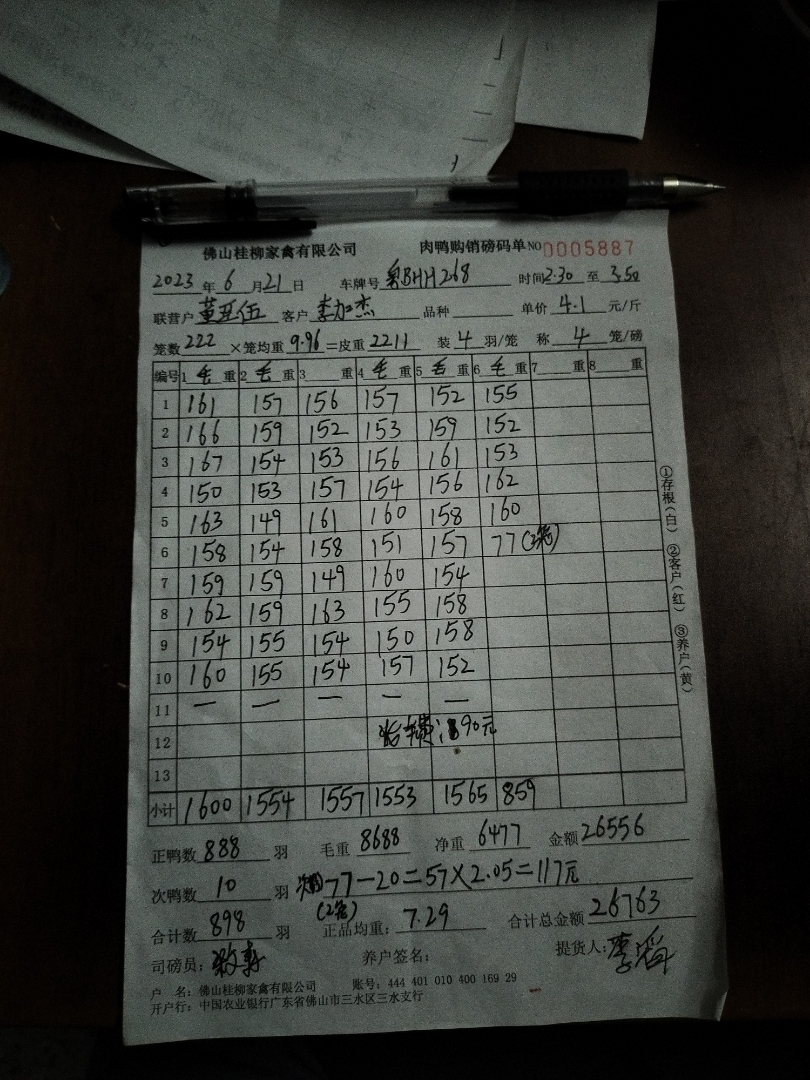 佛山桂柳家禽有限公司 肉鸭购销磅码单 NO 0005887
2023 年 6 月 21 日 车牌号 粤BHH268 时间 2.30 至 3.50
联营户 黄亚伍 客户 李加杰 品种 单价 4.1 元/斤
笼数 222 ×笼均重 9.96 =皮重 2211 装 4 羽/笼 称 4 笼/磅
编号 1 毛 重 2 毛 重 3 重 4 毛 重 5 毛 重 6 毛 重 7 重 8 重
1 161 157 156 157 152 155
2 166 159 152 153 159 152
3 167 154 153 156 161 153
4 150 153 157 154 156 162
5 163 149 161 160 158 160
6 158 154 158 151 157 77(2笼)
7 159 159 149 160 154
8 162 159 163 155 158
9 154 155 154 150 158
10 160 155 154 157 152
11 — — — — —
12 90元
13
小计 1600 1554 1557 1553 1565 859
正鸭数 888 羽 毛重 8688 净重 6477 金额 26556
次鸭数 10 羽 77-20=57×2.05=117元
(2笼)
合计数 898 羽 正品均重: 7.29 合计总金额 26763
司磅员: 养户签名: 提货人:
户 名: 佛山桂柳家禽有限公司 账号: 444 401 010 400 169 29
开户行: 中国农业银行广东省佛山市三水区三水支行
①存根(白) ②客户(红) ③养户(黄)